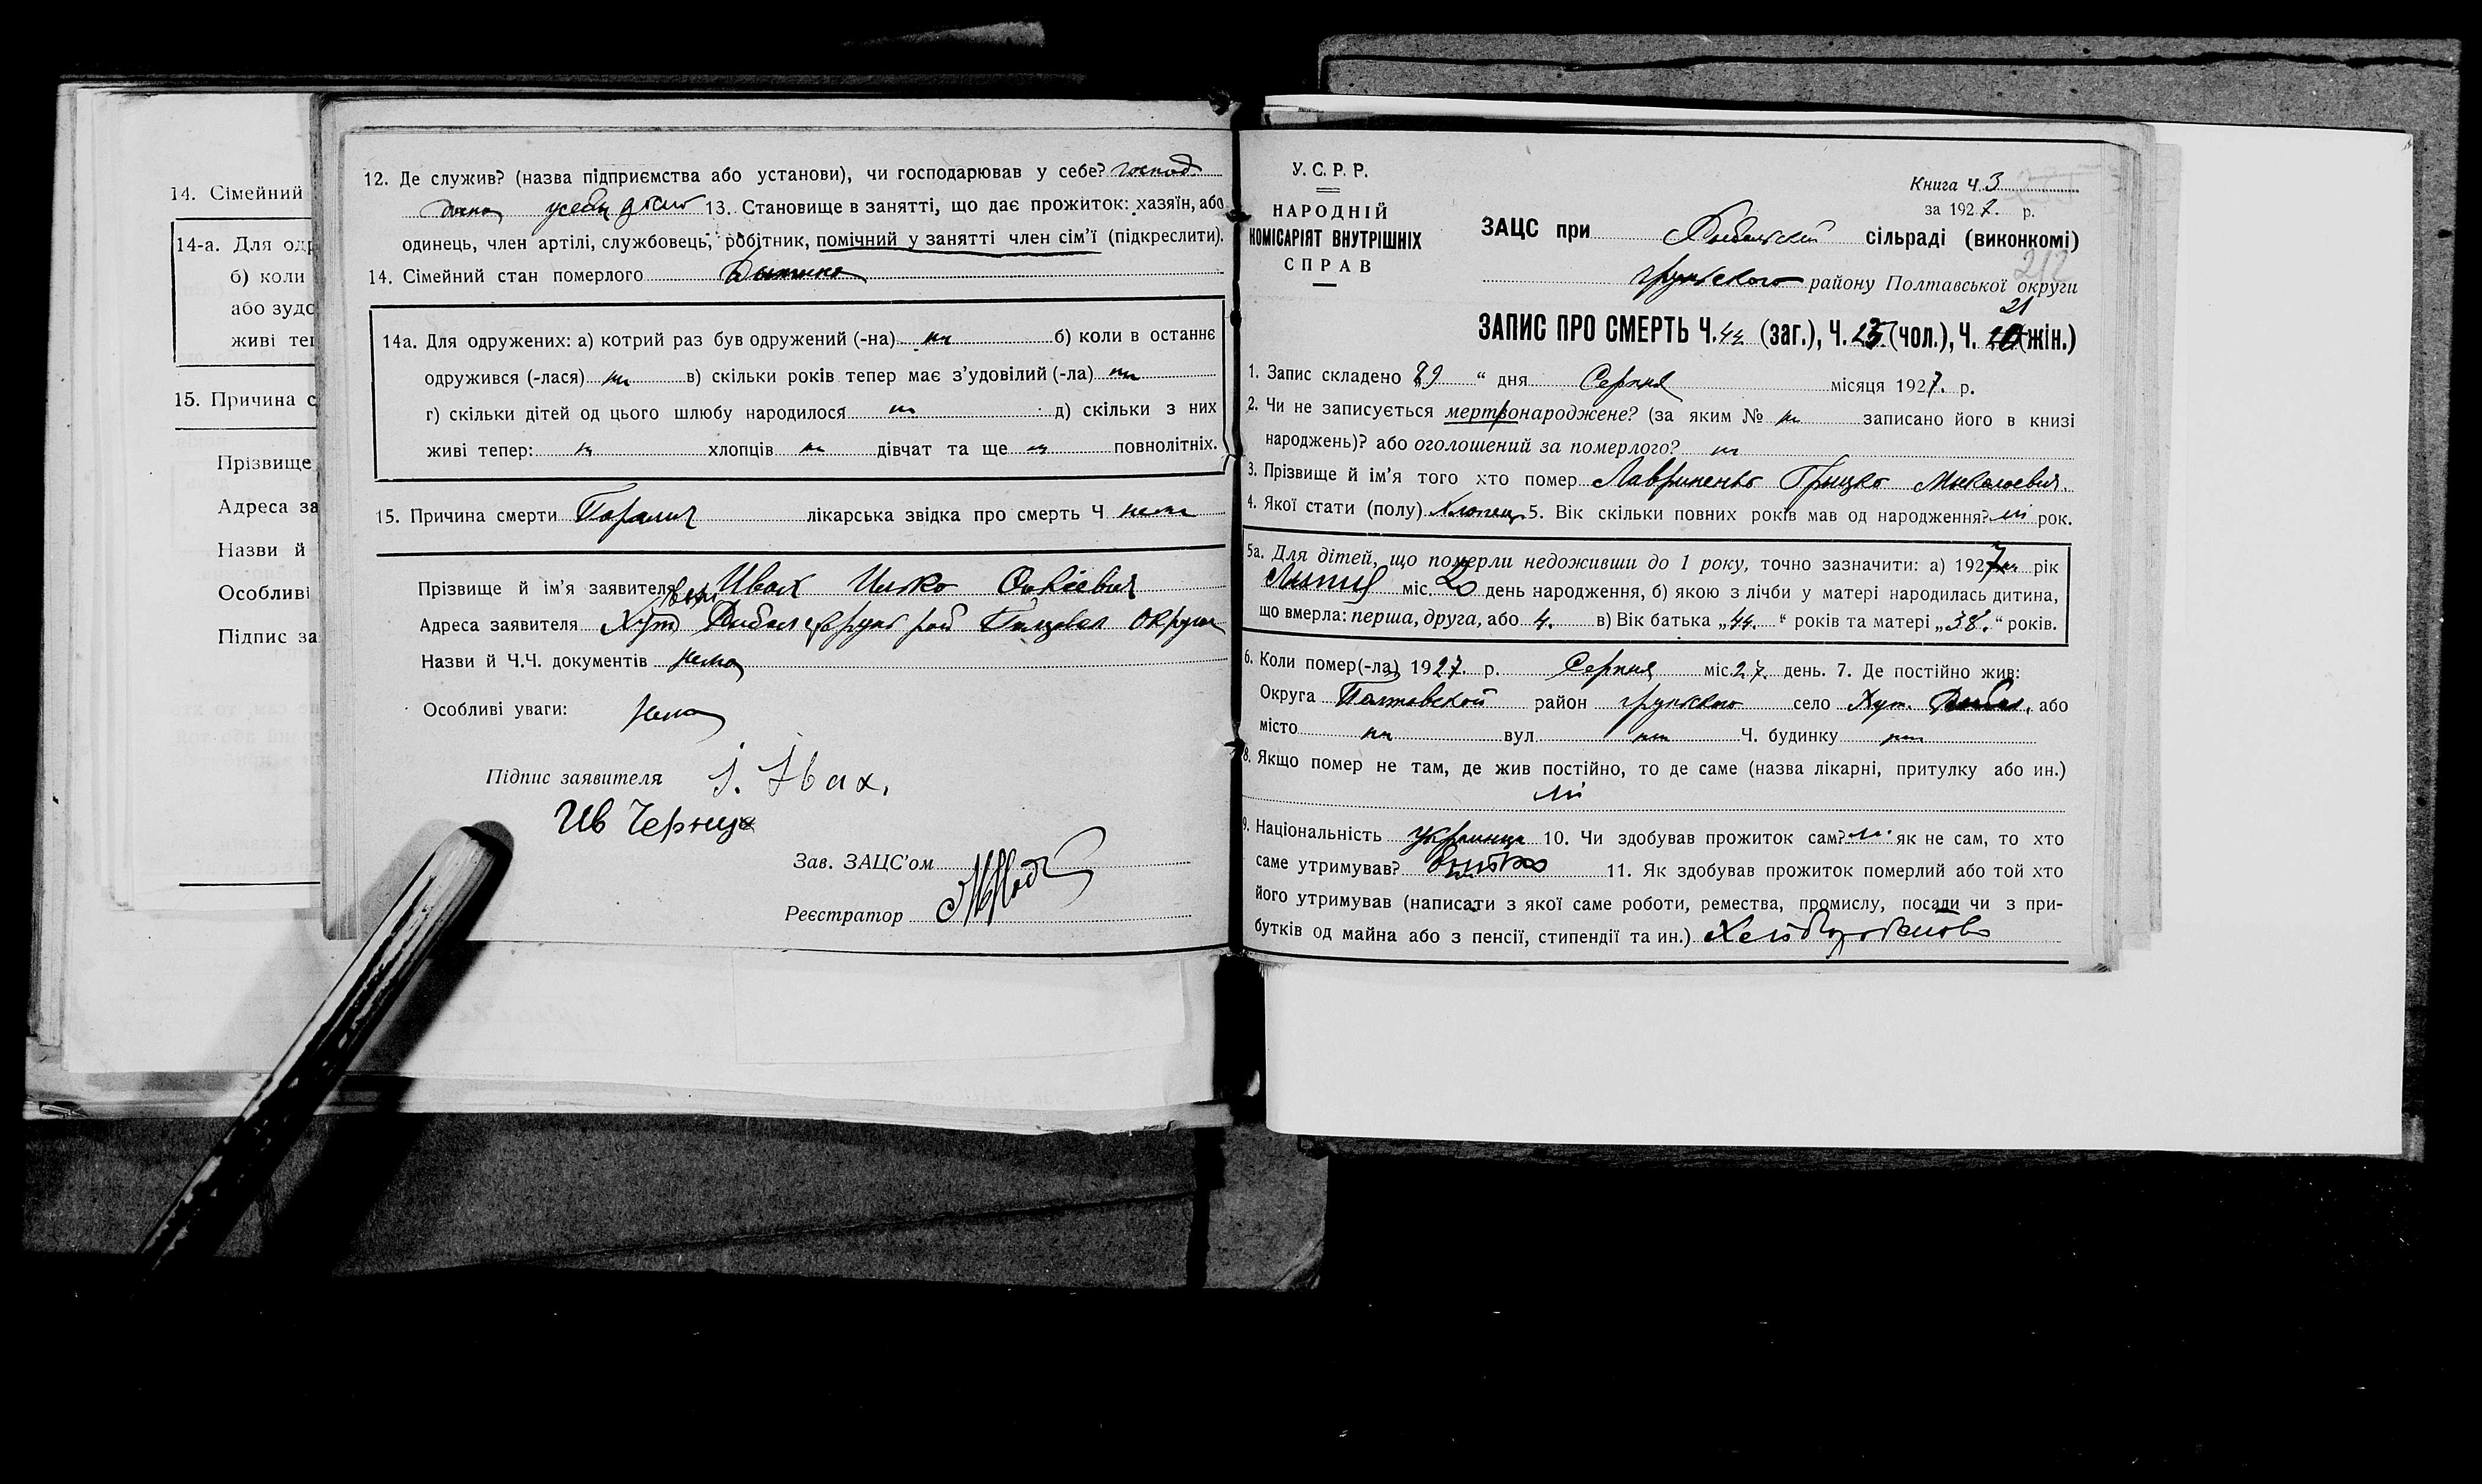 14. Сімейний
14-а. Для одр
б) коли
або зудо
живі теп
15. Причина с
Прізвище
Адреса за
Назви й
Особливі
Підпис за
12. Де служив? (назва підприємства або установи), чи господарював у себе? господ
13. Становище в занятті, що дає прожиток: хазяїн, або
одинець, член артілі, службовець, робітник, помічний у занятті член сім’ї (підкреслити).
14. Сімейний стан померлого
14а. Для одружених: а) котрий раз був одружений (-на) б) коли в останнє
одружився (-лася) в) скільки років тепер має з’удовілий (-ла)
г) скільки дітей од цього шлюбу народилося д) скільки з них
живі тепер: хлопців дівчат та ще повнолітніх.
15. Причина смерти лікарська звідка про смерть Ч нема
Прізвище й ім’я заявителя Ивах
Адреса заявителя Хут округи
Назви й Ч.Ч. документів нема
Особливі уваги: нема
Підпис заявителя І. Івах.
Ив
Зав. ЗАЦС’ом
Реєстратор
У. С. Р. Р.
НАРОДНІЙ
КОМІСАРІЯТ ВНУТРІШНІХ
СПРАВ
Книга ч. 3
за 1927. р.
ЗАЦС при сільраді (виконкомі)
212
грунського району Полтавської округи
21
ЗАПИС ПРО СМЕРТЬ Ч. 44 (заг.), Ч. 23 (чол.), Ч. 20 (жін.)
1. Запис складено 29 “ дня Серпня місяця 1927. р.
2. Чи не записується мертвонароджене? (за яким № записано його в книзі
народжень)? або оголошений за померлого?
3. Прізвище й ім’я того хто помер Лавриненко Грицько Миколаевич.
4. Якої стати (полу) Хлопец 5. Вік скільки повних років мав од народження? ні рок.
5а. Для дітей, що померли недоживши до 1 року, точно зазначити: а) 1927 рік
міс. день народження, б) якою з лічби у матері народилась дитина,
що вмерла: перша, друга, або 4. в) Вік батька „44. “ років та матері „38.“ років.
6. Коли помер(-ла) 1927. р. Серпня міс. 27. день. 7. Де постійно жив:
Округа Полтавской район грунского село Хут. , або
місто вул Ч. будинку
8. Якщо помер не там, де жив постійно, то де саме (назва лікарні, притулку або ин.)
ні
9. Національність украинца 10. Чи здобував прожиток сам? ні як не сам, то хто
саме утримував? батько 11. Як здобував прожиток померлий або той хто
його утримував (написати з якої саме роботи, ремества, промислу, посади чи з при-
бутків од майна або з пенсії, стипендії та ин.)